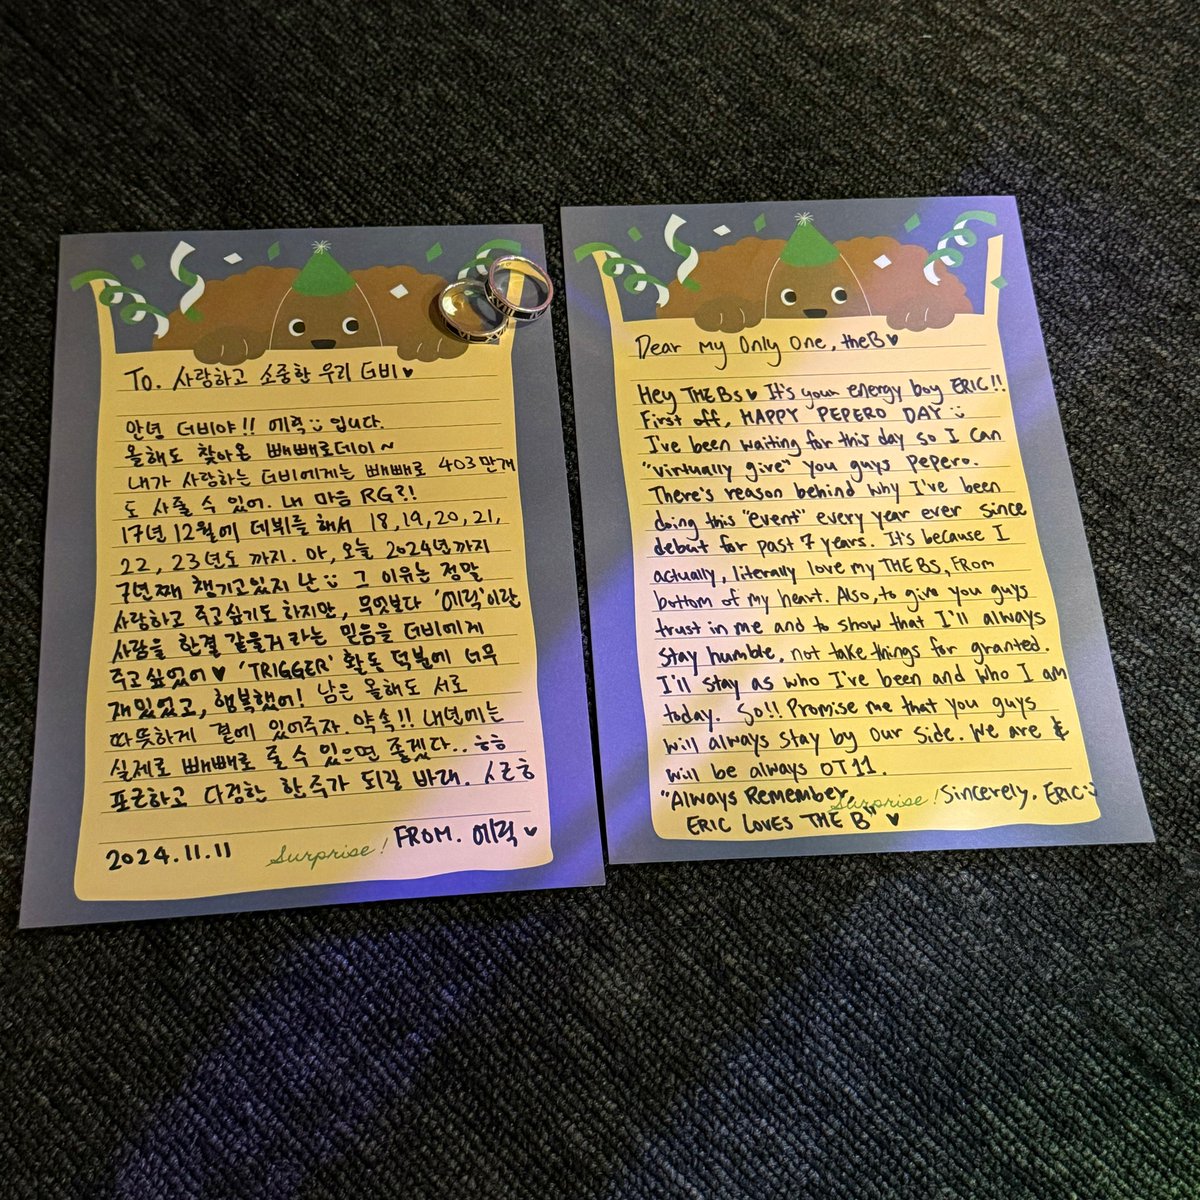 To. 사랑하고 소중한 우리 더비♥
안녕 더비야!! 에릭 입니다.
올해도 찾아온 빼빼로데이~
내가 사랑하는 더비에게는 빼빼로 403만개
도 사줄 수 있어. 내 마음 RG?!
17년 12월에 데뷔를 해서 18, 19, 20, 21,
22, 23년도 까지. 아, 오늘 2024년까지
7년째 챙기고있지 난 그 이유는 정말
사랑하고 주고싶기도 하지만, 무엇보다 '에릭'이란
사람을 한결 같을거라는 믿음을 더비에게
주고싶었어♥ 'TRIGGER' 활동 덕분에 너무
재밌었고, 행복했어! 남은 올해도 서로
따뜻하게 곁에 있어주자. 약속!! 내년에는
실제로 빼빼로 줄 수 있으면 좋겠다.. ㅎㅎ
포근하고 다정한 한 주가 되길 바래.
2024.11.11
Surprise!
FROM. 에릭♥
Dear My Only One, theB♥
Hey THEBs♥ It's your energy boy ERIC!!
First off, HAPPY PEPERO DAY
I've been waiting for this day so I can
"virtually give" you guys Pepero.
There's reason behind why I've been
doing this "event" every year ever since
debut for past 7 years. It's because I
actually, literally love my THEBS, From
bottom of my heart. Also, to give you guys
trust in me and to show that I'll always
stay humble, not take things for granted.
I'll stay as who I've been and who I am
today. So!! Promise me that you guys
will always stay by our side. We are &
will be always OT11.
"Always Remember, Surprise! Sincerely. ERIC
ERIC LOVES THE B" ♥